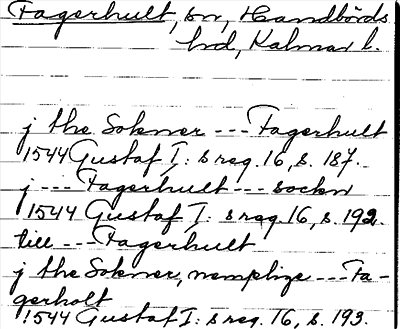 Fagerhult, sn, Handbörds
hd, Kalmar l.
j the Sokner --- Fagerhult
1544 Gustaf I: s reg. 16, s. 187.
j --- Fagerhult --- sockn
1544 Gustaf I: s reg. 16, s. 192.
till --- Fagerhult
j the Sokner, nemplige --- Fa-
gerholt
1544 Gustaf I: s reg. 16, s. 193.